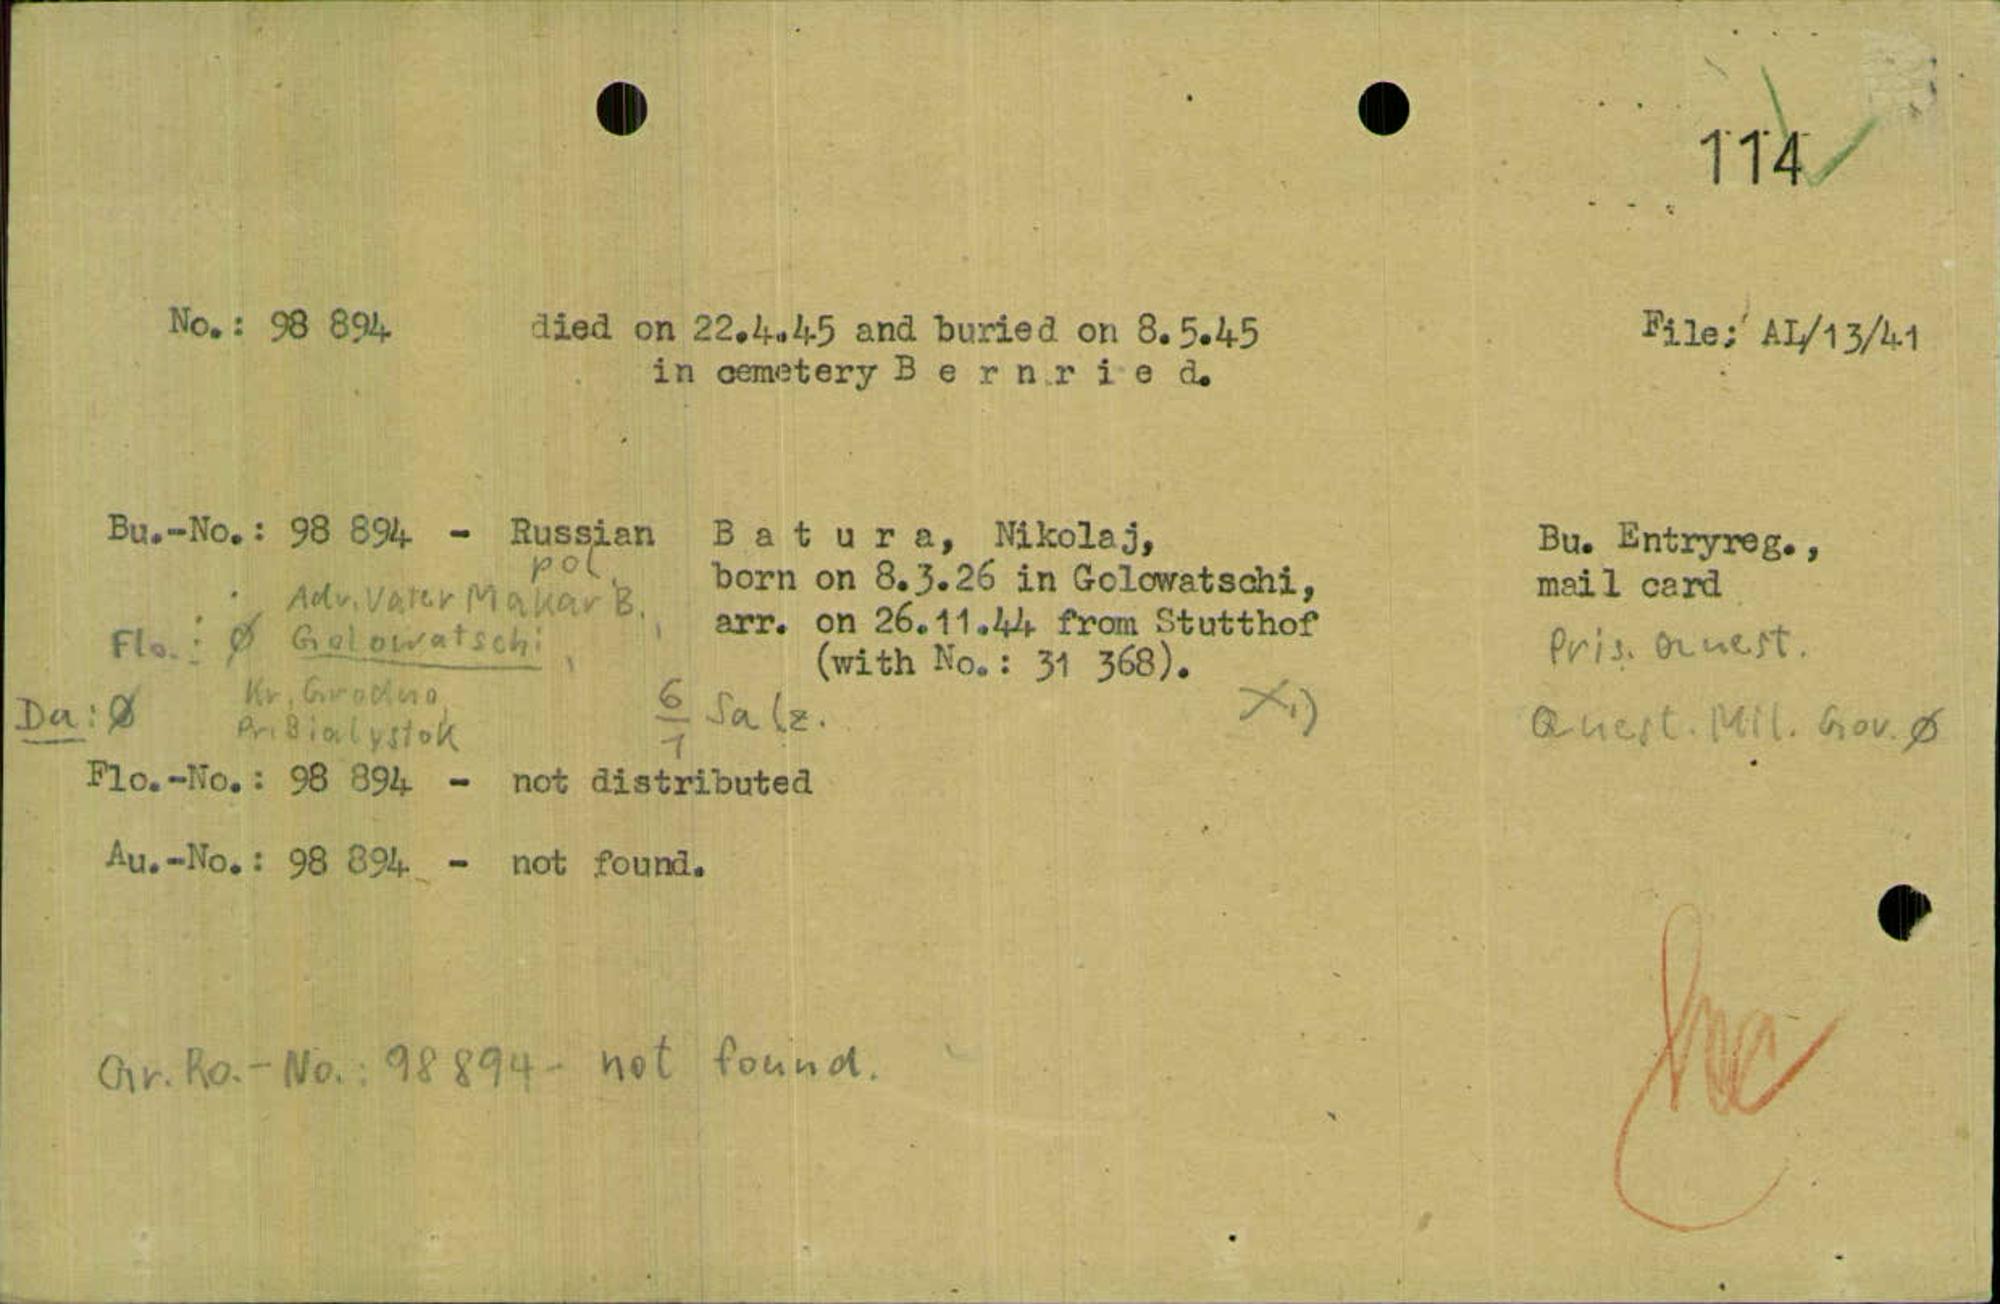 114
No.: 98 894 died on 22.4.45 and buried on 8.5.45 File: AL/13/41
in cemetery B e r n r i e d.
Bu.-No.: 98 894 - Russian B a t u r a, Nikolaj, Bu. Entryreg.,
pol. born on 8.3.26 in Golowatschi, mail card
Adr. Vater Makar B. arr. on 26.11.44 from Stutthof
Flo.: Ø Golowatschi, (with No.: 31 368). Pris. Quest.
Kr. Grodno,
Da: Ø 6/1 Salz. X1) Quest. Mil. Gov. Ø
Pr. Bialystok
Flo.-No.: 98 894 - not distributed
Au.-No.: 98 894 - not found.
Gr. Ro.-No.: 98894 - not found.